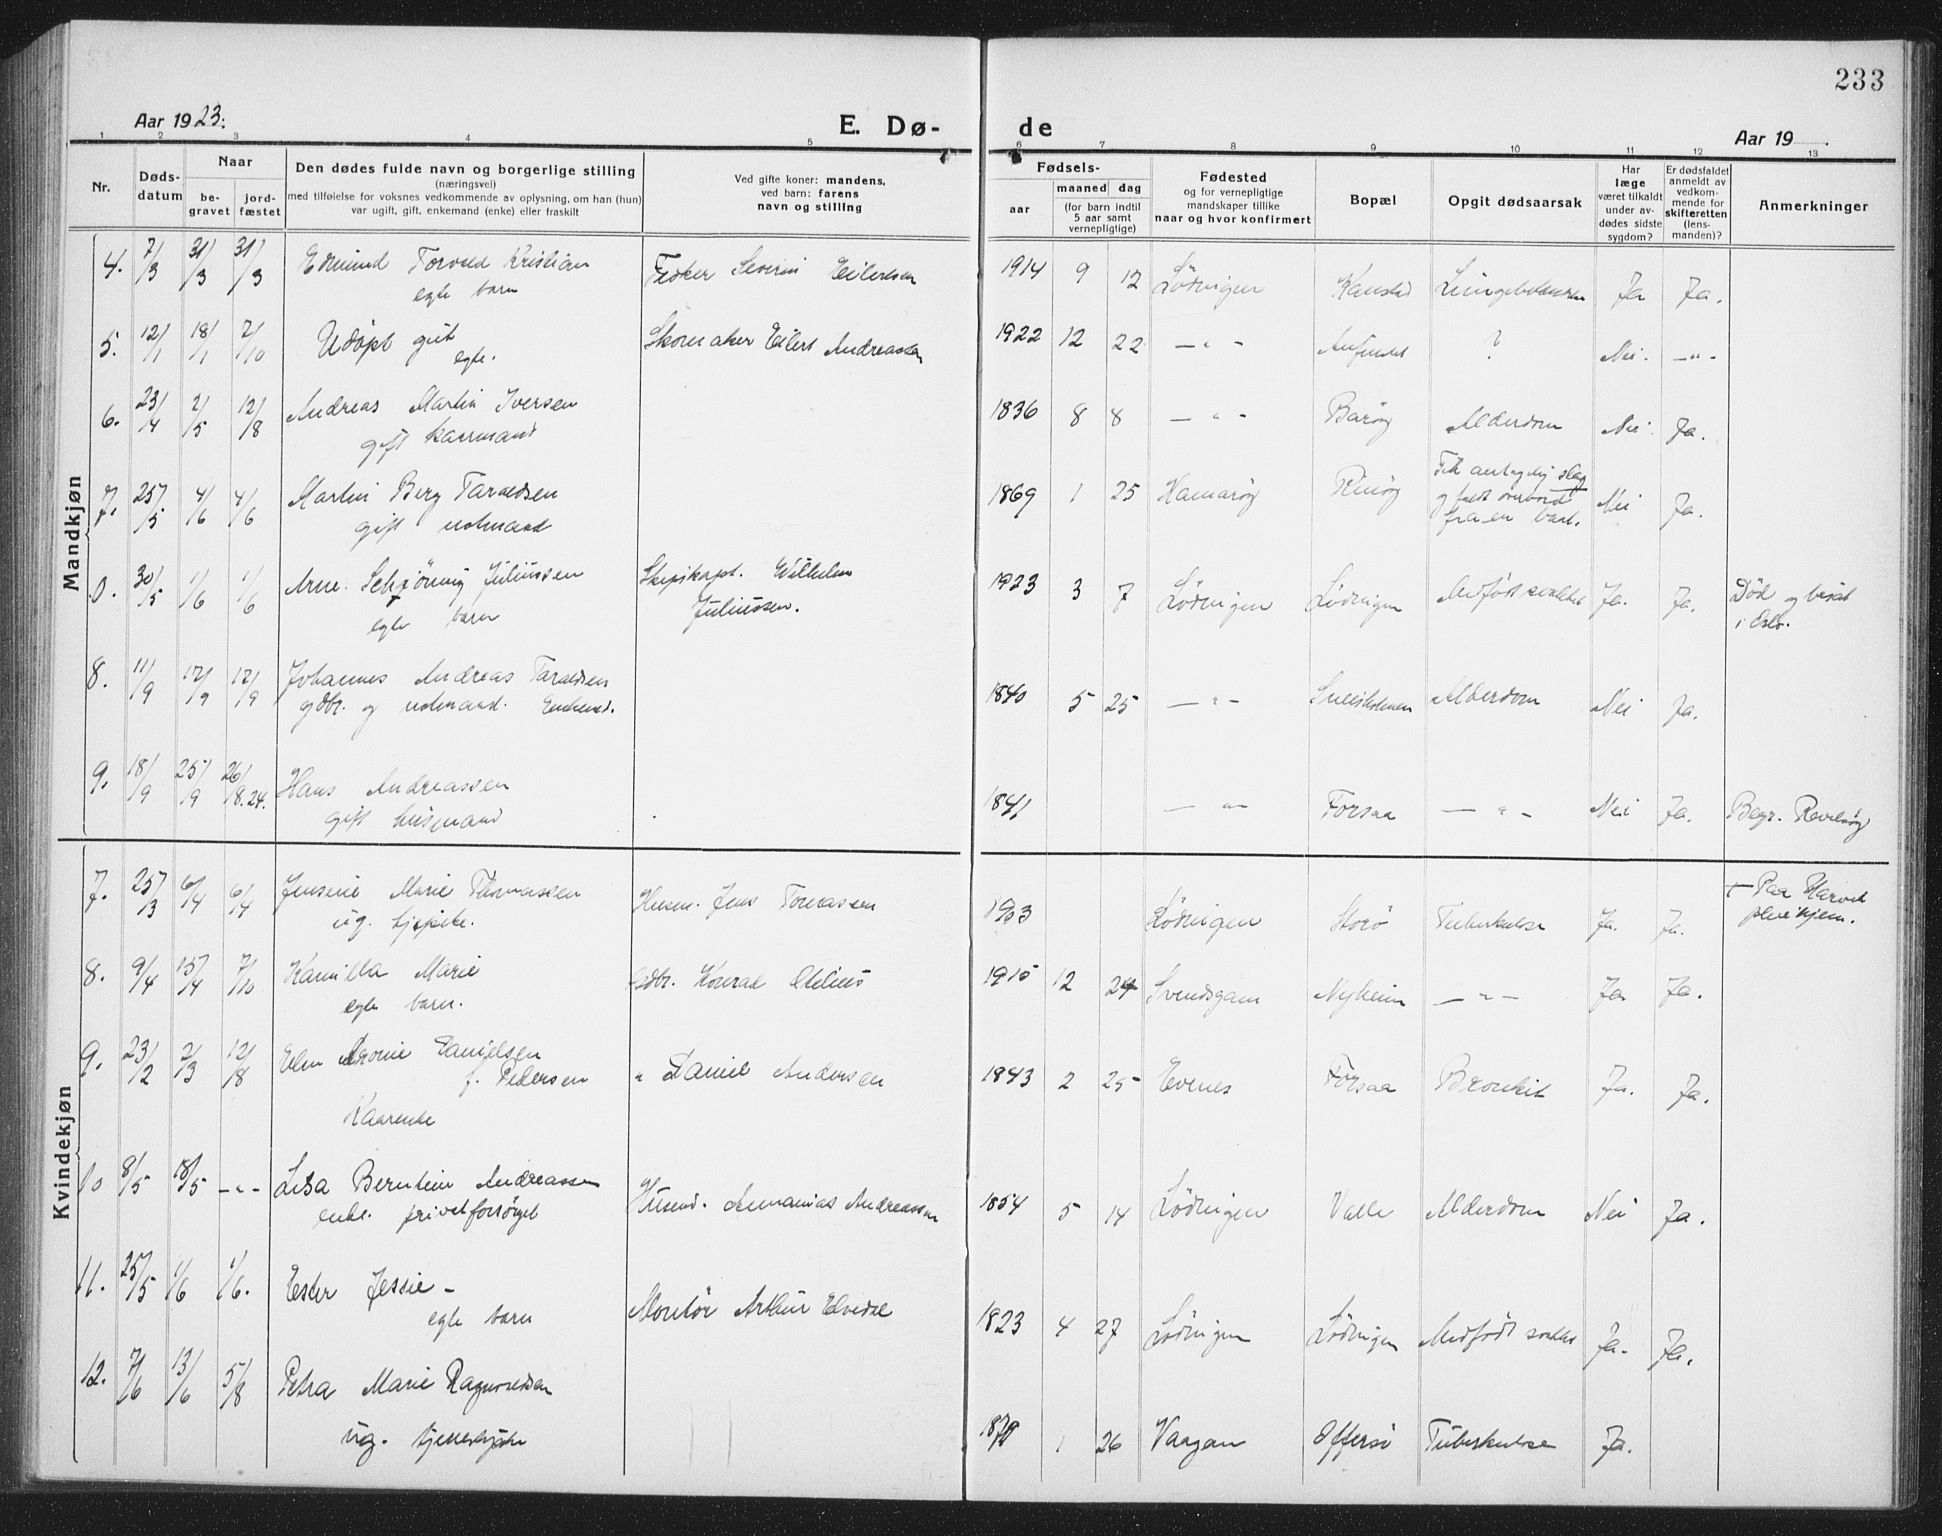 233
Aar 1923. E. Dø- de Aar 19
1 2 3 4 5 6 7 8 9 10 11 12 13
Nr. Døds-datum Naar begravet jordfæstet
Den dødes fulde navn og borgerlige stilling
(næringsvei)
med tilføielse for voksnes vedkommende av oplysning, om han (hun)
var ugift, gift, enkemand (enke) eller fraskilt
Ved gifte koner: mandens,
ved barn: farens
navn og stilling
Fødsels-
aar maaned dag
(for barn indtil
5 aar samt
vernepligtige)
Fødested
og for vernepligtige
mandskaper tillike
naar og hvor konfirmert
Bopæl
Opgit dødsaarsak
Har
læge
været tilkaldt
under av-
dødes sidste
sygdom?
Er dødsfaldet
anmeldt av
vedkom-
mende for
skifteretten
(lens-
manden)?
Anmerkninger
Mandkjøn
4. 7/3 31/3 31/3 Edmund Torvud Kristian Fisker Severin Eilertsen 1914 9 12 Lödingen Kanstad Ja Ja.
egte barn
5. 12/1 18/1 7/10 Udöpt gut Skomaker Eilert Andreassen 1922 12 22 — " — ? Nei. — " —
egte.
6. 23/4 2/5 12/8 Andreas Martin Iversen 1836 8 8 — " — Baröy Alderdom Nei. Ja.
gift kaarmand
7. 25/5 4/6 4/6 Martin Berg Taraldsen 1869 1 25 Hamaröy Rinöy Fik antagelig slag Nei Ja.
gift nolmand og faldt overbord
fra en baat.
0. 30/5 1/6 1/6 Arne Schjönning Juliussen Skipskapt. Wilhelm 1923 3 7 Lödingen Lödingen Medfödt svakhet Ja. Ja. Död og
egte barn Juliussen. i Oslo.
8. 11/9 17/9 17/9 Johannes Andreas Taraldsen 1840 5 25 — " — Alderdom Nei Ja.
gdbr. og nolmand. Enkemd.
9. 18/9 25/9 26/8.24. Hans Andreassen 1841 — " — Forsaa — " — Nei Ja. Begr.
gift husmand
Kvindekjøn
7. 25/3 6/4 6/4 Jensine Marie Thomassen Husm. Jens Tomassen 1903 Lödingen Storö Tuberkulose Ja. Ja. + Paa Harstad
ug. pleiehjem.
8. 9/4 15/4 7/10 Kamilla Marie Gdbr. Konrad Otelius 1915 12 24 Svendsgam Nyheim — " — Ja. Ja.
egte barn.
9. 23/2 2/3 12/8 Elen Danielsen " Daniel Andersen 1843 2 25 Evenes Forsaa Bronkit Ja. Ja.
f. Pedersen
Kaarenke
10 8/5 18/5 — " — Lisa Berntin Andreassen Husmd. Annanias Andreassen 1854 5 14 Lödingen Valle Alderdom Nei Ja.
enke. privatforsörget
11. 25/5 1/6 1/6. Ester Jessie — Montör Arthur 1823 4 27 Lödingen Lödingen Medfödt svakhet Ja. Ja.
egte barn
12. 7/6 13/6 5/8 Petra Marie Ragnvaldsen 1879 1 26 Vaagan Offersö Tuberkulose Ja.
ug. tjenestepike